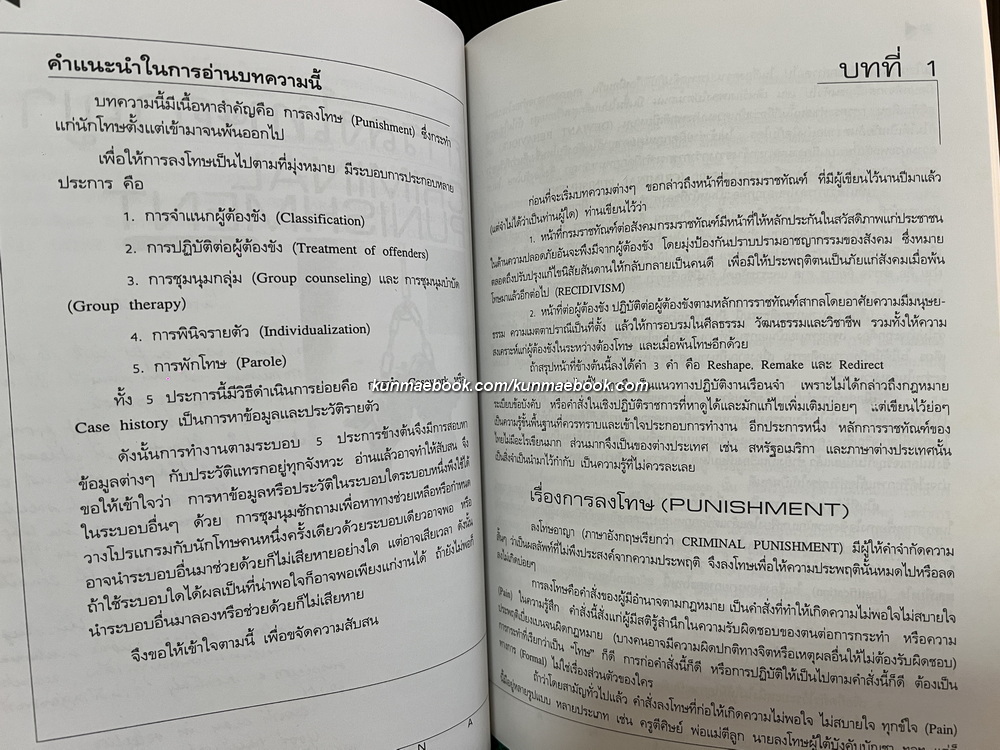 คำแนะนำในการอ่านบทความนี้
บทความนี้มีเนื้อหาสำคัญคือ การลงโทษ (Punishment) ซึ่งกระทำ
แก่นักโทษตั้งแต่เข้ามาจนพ้นออกไป
เพื่อให้การลงโทษเป็นไปตามที่มุ่งหมาย มีระบอบการประกอบหลาย
ประการ คือ
1. การจำแนกผู้ต้องขัง (Classification)
2. การปฏิบัติต่อผู้ต้องขัง (Treatment of offenders)
3. การชุมนุมกลุ่ม (Group counseling) และ การชุมนุมบำบัด
(Group therapy)
4. การพินิจรายตัว (Individualization)
5. การพักโทษ (Parole)
ทั้ง 5 ประการนี้มีวิธีดำเนินการย่อยคือ
kunmaebook.com/kunmaebook.com
Case history เป็นการหาข้อมูลและประวัติรายตัว
ดังนั้นการทำงานตามระบอบ 5 ประการข้างต้นจึงมีการสอบหา
ข้อมูลต่างๆ กับประวัติแทรกอยู่ทุกจังหวะ อ่านแล้วอาจทำให้สับสน จึง
ขอให้เข้าใจว่า การหาข้อมูลหรือประวัติในระบอบใดระบอบหนึ่งพึงใช้ได้
ในระบอบอื่นๆ ด้วย การชุมนุมซักถามเพื่อหาทางช่วยเหลือหรือกำหนด
วางโปรแกรมกับนักโทษคนหนึ่งครั้งเดียวด้วยระบอบเดียวอาจพอ หรือ
อาจนำระบอบอื่นมาช่วยด้วยก็ไม่เสียหายอย่างใด แต่อาจเสียเวลา ดังนั้น
ถ้าใช้ระบอบใดได้ผลเป็นที่น่าพอใจก็อาจพอเพียงแก่งานได้ ถ้ายังไม่พอก็
นำระบอบอื่นมาลองหรือช่วยด้วยก็ไม่เสียหาย
จึงขอให้เข้าใจตามนี้ เพื่อขจัดความสับสน
N A
บทที่ 1
ก่อนที่จะเริ่มบทความต่างๆ ขอกล่าวถึงหน้าที่ของกรมราชทัณฑ์ ที่มีผู้เขียนไว้นานปีมาแล้ว
(แต่จำไม่ได้ว่าเป็นท่านผู้ใด) ท่านเขียนไว้ว่า
1. หน้าที่กรมราชทัณฑ์ต่อสังคมกรมราชทัณฑ์มีหน้าที่ให้หลักประกันในสวัสดิภาพแก่ประชาชน
ในด้านความปลอดภัยอันจะพึงมีจากผู้ต้องขัง โดยมุ่งป้องกันปราบปรามอาชญากรรมของสังคม ซึ่งหมาย
ตลอดถึงปรับปรุงแก้ไขนิสัยสันดานให้กลับกลายเป็นคนดี เพื่อมิให้ประพฤติตนเป็นภัยแก่สังคมเมื่อพ้น
โทษมาแล้วอีกต่อไป (RECIDIVISM)
2. หน้าที่ต่อผู้ต้องขัง ปฏิบัติต่อผู้ต้องขังตามหลักการราชทัณฑ์สากลโดยอาศัยความมีมนุษย-
ธรรม ความเมตตาปราณีเป็นที่ตั้ง แล้วให้การอบรมในศีลธรรม วัฒนธรรมและวิชาชีพ รวมทั้งให้ความ
สงเคราะห์แก่ผู้ต้องขังในระหว่างต้องโทษ และเมื่อพ้นโทษอีกด้วย
ถ้าสรุปหน้าที่ข้างต้นนี้ลงได้คำ 3 คำ คือ Reshape, Remake และ Redirect
นแนวทางปฏิบัติงานเรือนจำ เพราะไม่ได้กล่าวถึงกฎหมาย
ระเบียบข้อบังคับ หรือคำสั่งในเชิงปฏิบัติราชการที่หาดูได้และมักแก้ไขเพิ่มเติมบ่อยๆ แต่เขียนไว้ย่อๆ
เป็นความรู้ขั้นพื้นฐานที่ควรทราบและเข้าใจประกอบการทำงาน อีกประการหนึ่ง หลักการราชทัณฑ์ของ
ไทยไม่มีอะไรเขียนมาก ส่วนมากจึงเป็นของต่างประเทศ เช่น สหรัฐอเมริกา และภาษาต่างประเทศนั้น
เป็นสิ่งจำเป็นนำมาไว้กำกับ เป็นความรู้ที่ไม่ควรละเลย
เรื่องการลงโทษ (PUNISHMENT)
ลงโทษอาญา (ภาษาอังกฤษเรียกว่า CRIMINAL PUNISHMENT) มีผู้ให้คำจำกัดความ
สั้นๆ ว่าเป็นผลลัพท์ที่ไม่พึงประสงค์จากความประพฤติ จึงลงโทษเพื่อให้ความประพฤตินั้นหมดไปหรือลด
ลงไม่เกิดบ่อยๆ
การลงโทษคือคำสั่งของผู้มีอำนาจตามกฎหมาย เป็นคำสั่งที่ทำให้เกิดความไม่พอใจไม่สบายใจ
(Pain) ในความรู้สึก คำสั่งนี้สั่งแก่ผู้มีสติรู้สำนึกในความรับผิดชอบของตนต่อการกระทำ หรือความ
ประพฤติเบี่ยงเบนจนผิดกฎหมาย (บางคนอาจมีความผิดปกติทางจิตหรือเหตุผลอื่นให้ไม่ต้องรับผิดชอบ)
การกระทำที่เรียกว่าเป็น "โทษ" ก็ดี การก่อคำสั่งนี้ก็ดี หรือการปฏิบัติให้เป็นไปตามคำสั่งนี้ก็ดี ต้องเป็น
ทางการ (Formal) ไม่ใช่เรื่องส่วนตัวของใคร
ถ้าว่าโดยสามัญทั่วไปแล้ว คำสั่งลงโทษที่ก่อให้เกิดความไม่พอใจ ไม่สบายใจ ทุกข์ใจ (Pain)
นี้มีอยู่หลายรูปแบบ หลายประเภท เช่น ครูตีศิษย์ พ่อแม่ตีลูก นายลงโทษผู้ใต้บังคับบัญชา